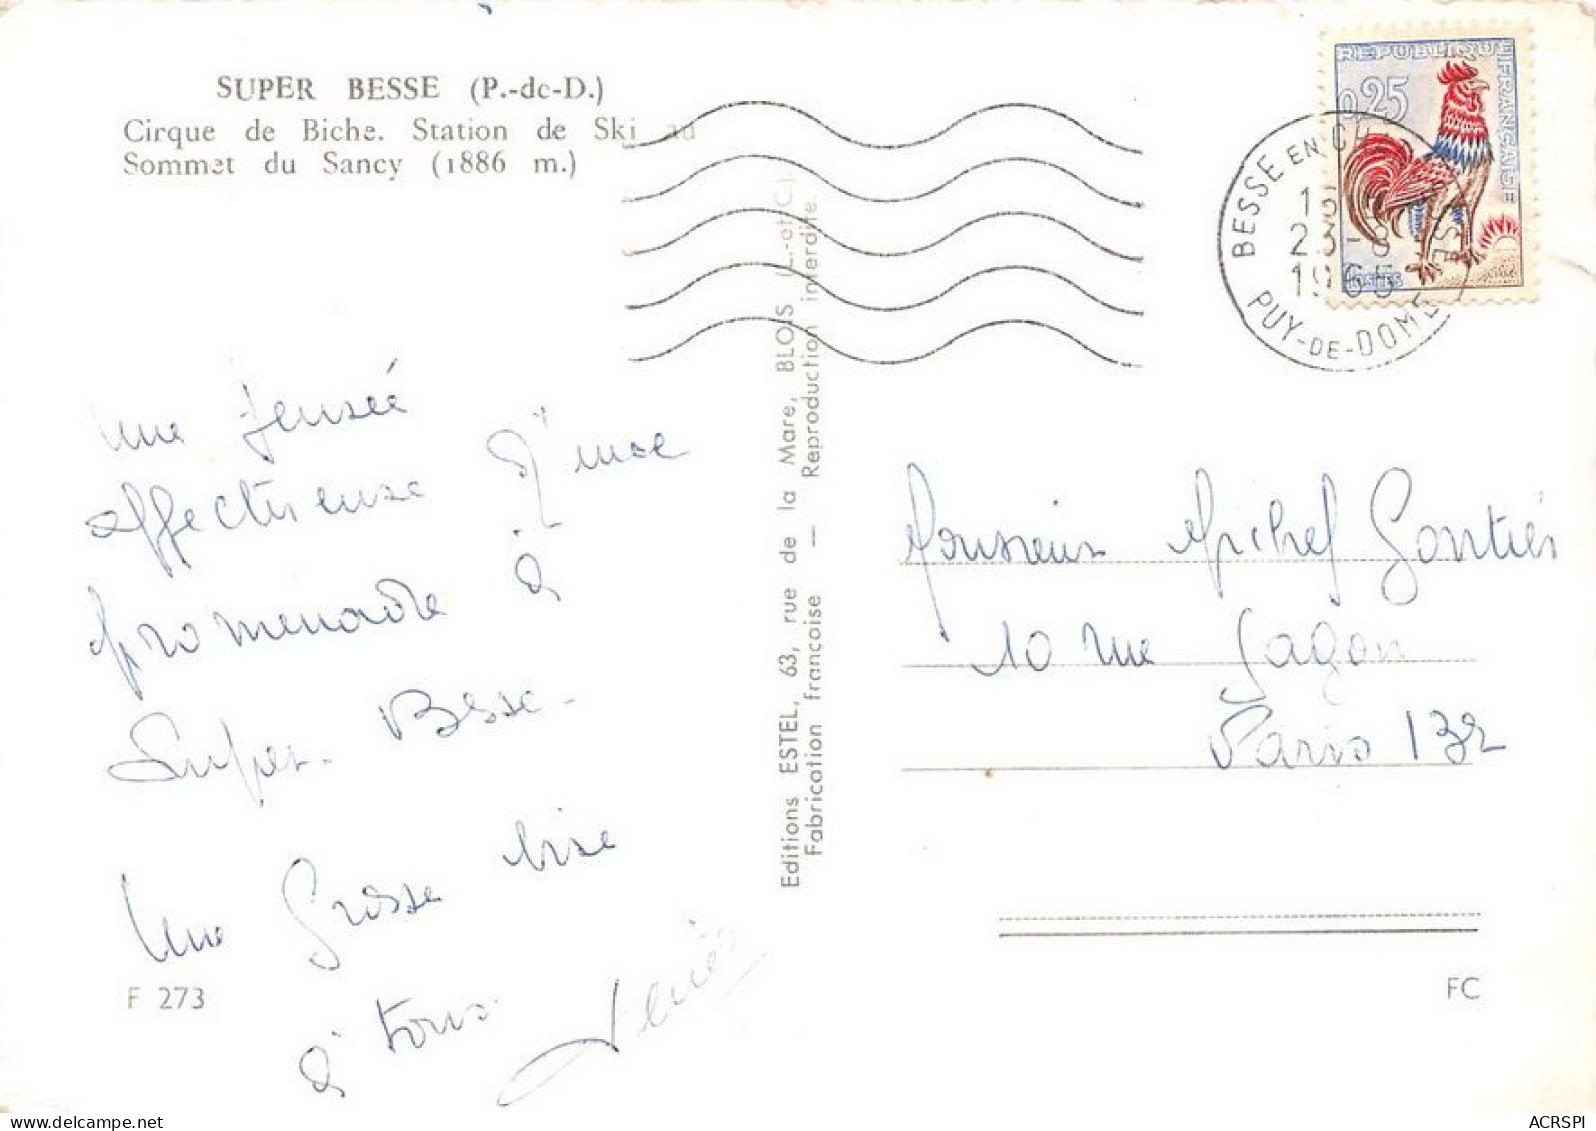 SUPER BESSE (P.-de-D.)
Cirque de Biche. Station de Ski au
Sommet du Sancy (1886 m.)
REPUBLIQUE FRANÇAISE
0,25
POSTES
BESSE EN CH
PUY-DE-DOME
23-8
1965
Une pensée
affectueuse d'une
promenade à
Super-Besse.
Une Grosse bise
à tous
Editions ESTEL, 63, rue de la Mare, BLOIS (L.-et-C.).
Fabrication française — Reproduction interdite.
Monsieur Michel Gontier
10 rue
Paris 13e
F 273
FC
delcampe.net
ACRSPI